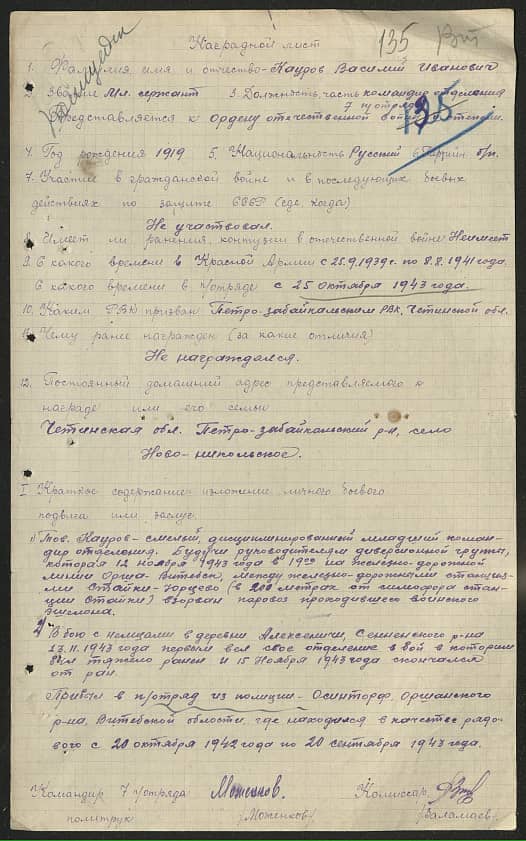 135
Наградной лист
1. Фамилия, имя и отчество - Кауров Василий Иванович
2. Звание Мл. сержант 3. Должность, часть командир отделения
7 п/отряда
135
Представляется к Ордену отечественной войны степени.
4. Год рождения 1919 5. Национальность Русский 6. Партийн. б/п.
7. Участие в гражданской войне и в последующих боевых
действиях по защите СССР (где, когда)
Не участвовал.
8. Имеет ли ранения, контузии в отечественной войне Не имеет
9. С какого времени в Красной Армии с 25.9.1939 г. по 8.8.1941 года.
С какого времени в п/отряде с 25 октября 1943 года.
10. Каким РВК призван Петро-забайкальским РВК, Читинской обл.
11. Чему ранее награжден (за какие отличия)
Не награждался.
12. Постоянный домашний адрес представляемого к
награде или его семьи
Четинская обл. Петро-забайкальский р-н, село
Ново-никольское.
I Краткое содержание изложение личного боевого
подвига или заслуг.
1) Тов. Кауров - смелый, дисциплинированный младший коман-
дир отделения. Будучи руководителям диверсионной группы,
которая 12 ноября 1943 года в 19 00 на железно-дорожной
линии Орша-Витебск, между железно-дорожными станция-
ми Стайки-Юрцево (в 200 метрах от симофора стан-
ции Стайки) взорван паровоз проходившего воинского
эшелона.
2) В бою с немцами в деревни Алексеничи, Сенненского р-на
13.11.1943 года первым вел свое отделение в бой в котором
был тяжело ранен и 15 Ноября 1943 года скончался
от ран.
Прибыл в п/отряд из полиции - Осинторф, Оршанского
р-на, Витебской области, где находился в качестве рядо-
вого с 20 октября 1942 года по 20 сентября 1943 года.
Командир 7 п/отряда Моженков. Комиссар
политрук /Моженков/ /Валамаев/